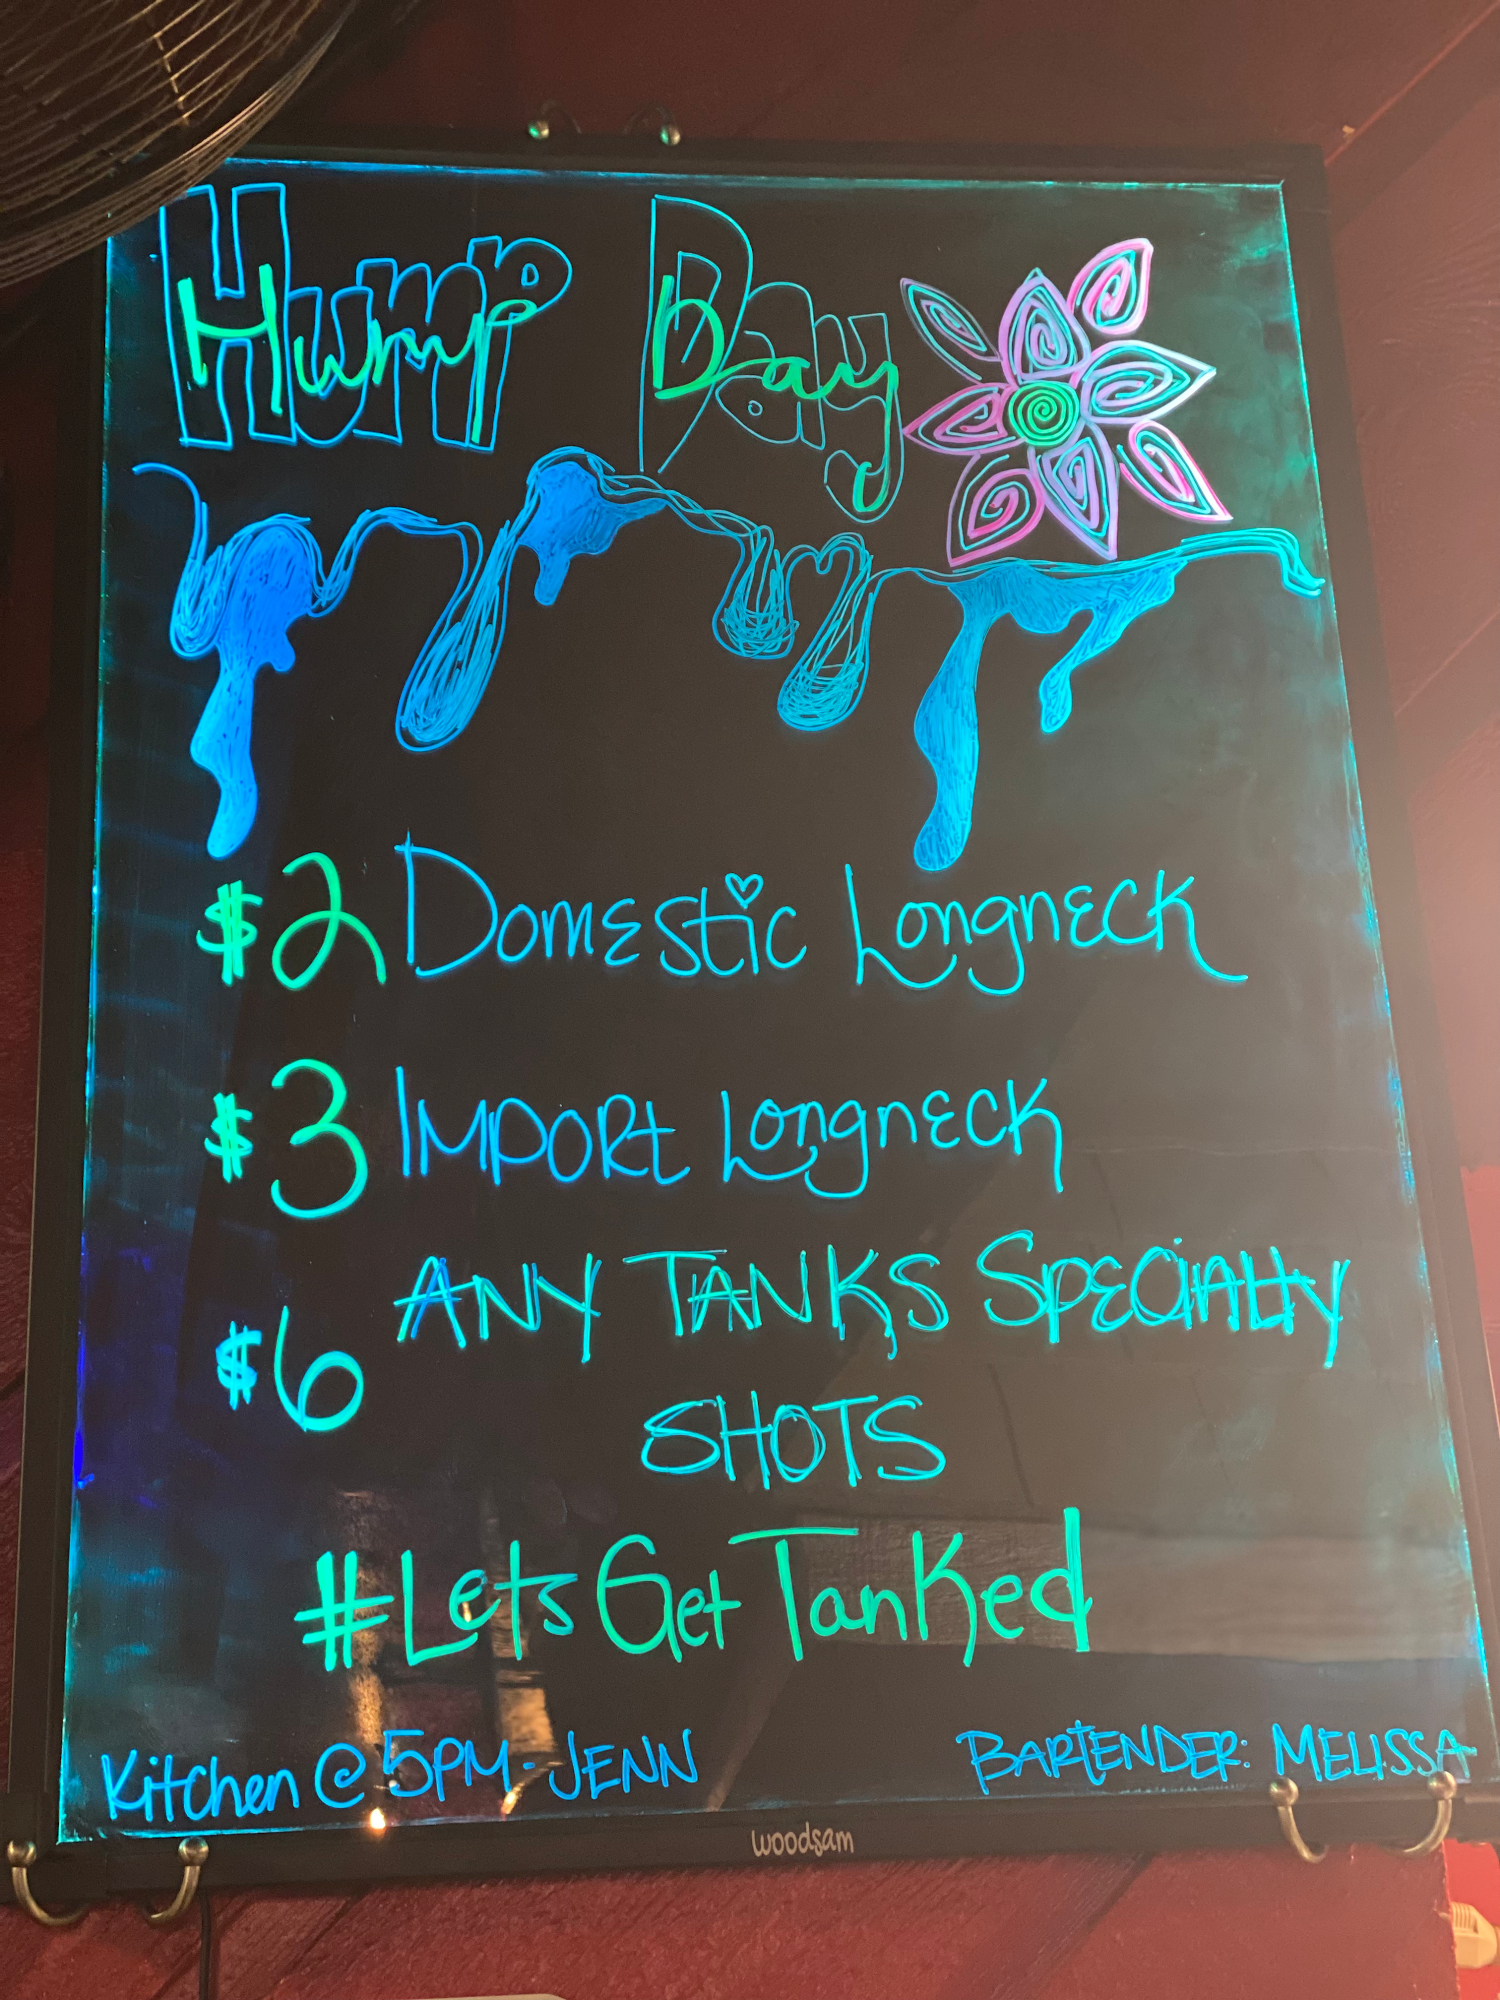 Hump Day
$2 Domestic Longneck
$3 Import Longneck
$6 ANY TANKS SPECIALTY
SHOTS
#Lets Get Tanked
Kitchen @ 5PM - JENN
BARTENDER: MELISSA
woodsam